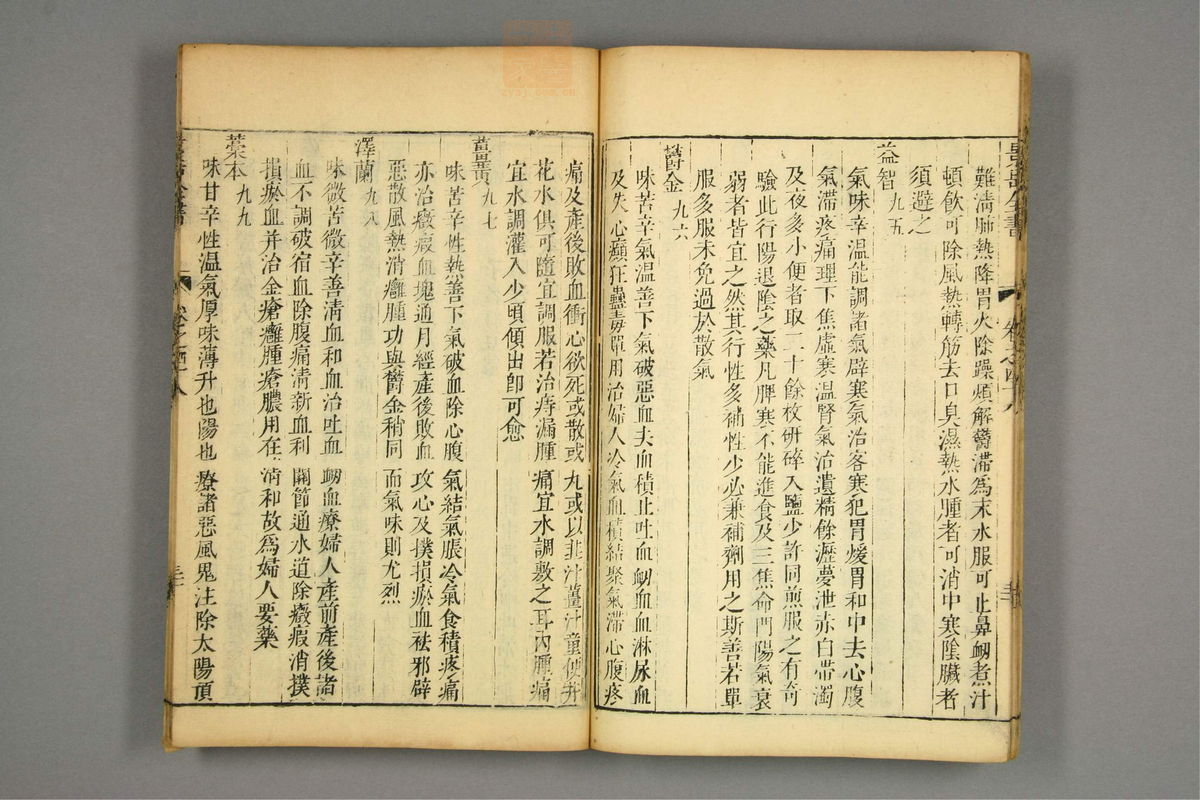 難清肺熱降胃火除躁煩解鬱滯爲末水服可止鼻衂煮汁
頓飲可除風熱轉筋去口臭濕熱水腫者可消中寒陰臟者
須避之
益智九五
氣味辛溫能調諸氣辟寒氣治客寒犯胃煖胃和中去心腹
氣滯疼痛理下焦虛寒溫腎氣治遺精餘瀝夢泄赤白帶濁
及夜多小便者取二十餘枚研碎入鹽少許同煎服之有奇
驗此行陽退陰之藥凡脾寒不能進食及三焦命門陽氣衰
弱者皆宜之然其行性多補性少必兼補劑用之斯善若單
服多服未免過於散氣
鬱金九六
味苦辛氣溫善下氣破惡血去血積止吐血衂血血淋尿血
及失心癲狂蠱毒單用治婦人冷氣血積結聚氣滯心腹疼
痛及產後敗血衝心欲死或散或丸或以韭汁薑汁童便井
花水俱可隨宜調服若治痔漏腫痛宜水調敷之耳內腫痛
宜水調灌入少頃傾出卽可愈
薑黃九七
味苦辛性熱善下氣破血除心腹氣結氣脹冷氣食積疼痛
亦治癥瘕血塊通月經產後敗血攻心及撲損瘀血祛邪辟
惡散風熱消癰腫功與鬱金稍同而氣味則尤烈
澤蘭九八
味微苦微辛善清血和血治吐血衂血療婦人產前產後諸
血不調破宿血除腹痛清新血利關節通水道除癥瘕消撲
損瘀血并治金瘡癰腫瘡膿用在清和故爲婦人要藥
藁本九九
味甘辛性溫氣厚味薄升也陽也療諸惡風鬼注除太陽頂